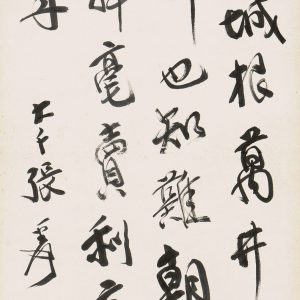 城根萬井
也知難朝
毫賣利
大千張爰